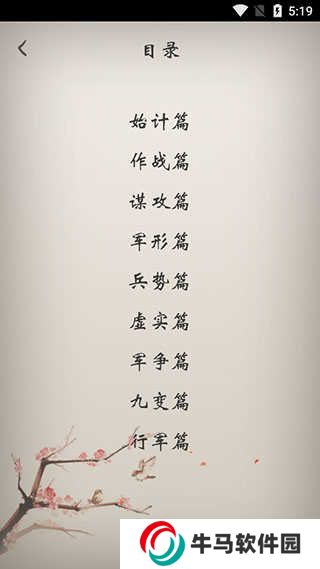 5:19
目录
始计篇
作战篇
谋攻篇
军形篇
兵势篇
虚实篇
军争篇
九变篇
行军篇
牛马软件园